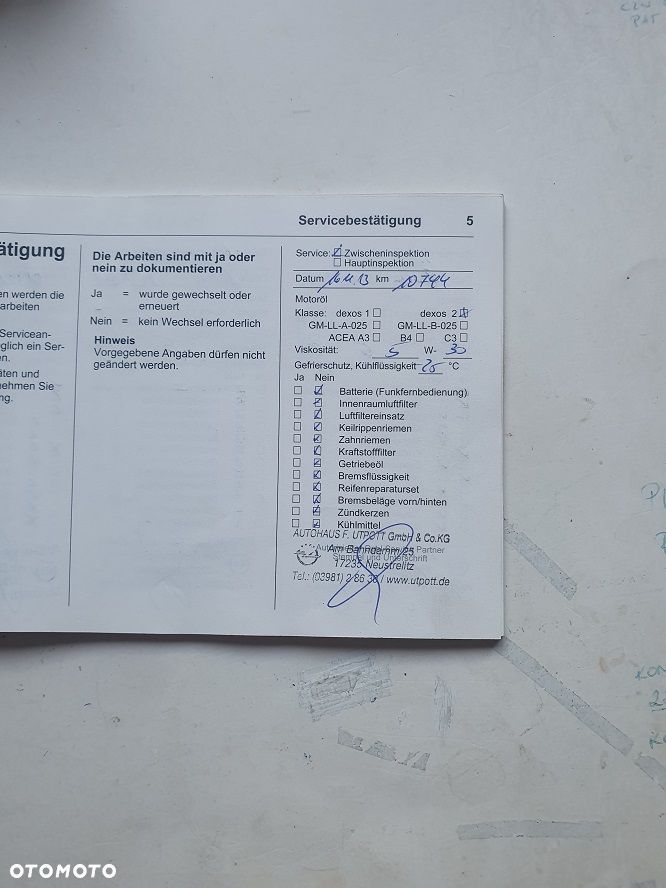 Servicebestätigung 5
ätigung
en werden die
arbeiten
Servicean-
glich ein Ser-
en.
äten und
nehmen Sie
ng.
Die Arbeiten sind mit ja oder
nein zu dokumentieren
Ja = wurde gewechselt oder
erneuert
Nein = kein Wechsel erforderlich
Hinweis
Vorgegebene Angaben dürfen nicht
geändert werden.
Service: Zwischeninspektion
Hauptinspektion
Datum km 10744
Motoröl
Klasse: dexos 1 dexos 2
GM-LL-A-025 GM-LL-B-025
ACEA A3 B4 C3
Viskosität: 5 W- 30
Gefrierschutz, Kühlflüssigkeit °C
Ja Nein
Batterie (Funkfernbedienung)
Innenraumluftfilter
Luftfiltereinsatz
Keilrippenriemen
Zahnriemen
Kraftstofffilter
Getriebeöl
Bremsflüssigkeit
Reifenreparaturset
Bremsbeläge vorn/hinten
Zündkerzen
Kühlmittel
AUTOHAUS F. UTPOTT GmbH & Co.KG
Partner
Am Bahndamm 25
Stempel und Unterschrift
17235 Neustrelitz
Tel.: (03981) 2 86 30 / www.utpott.de
OTOMOTO